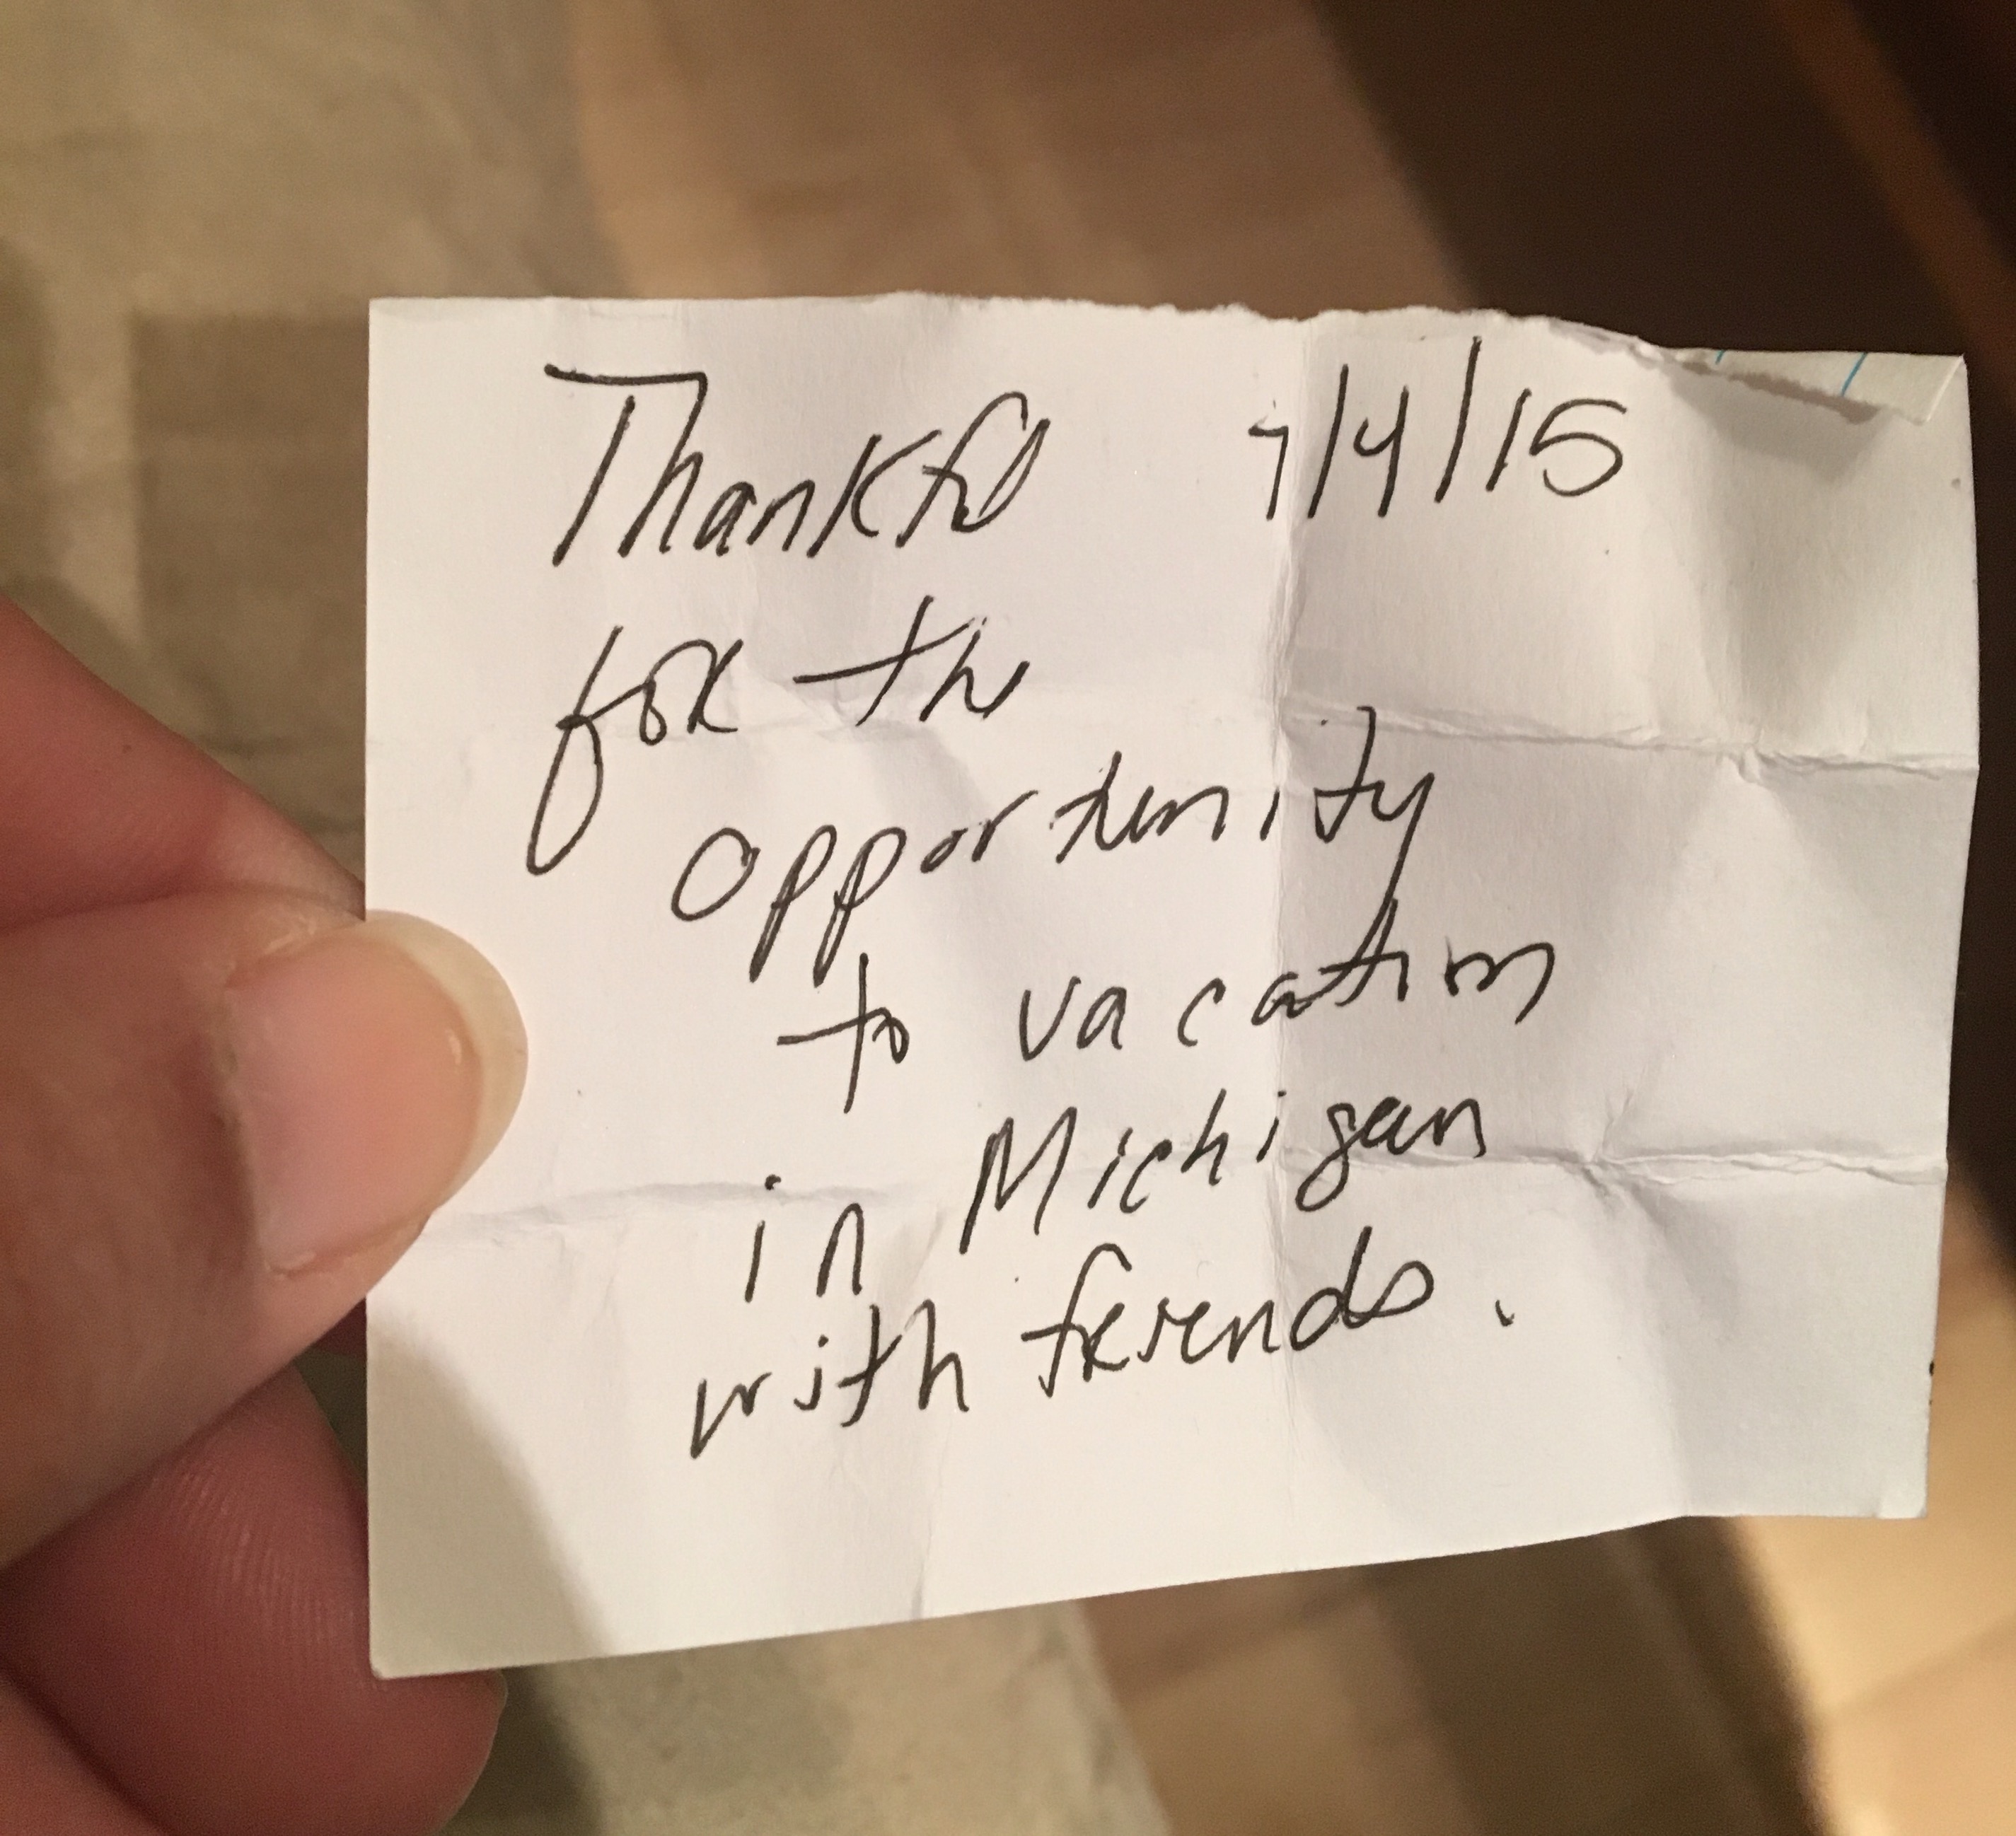 Thankful 7/4/15
for the
opportunity
to vacation
in Michigan
with friends.